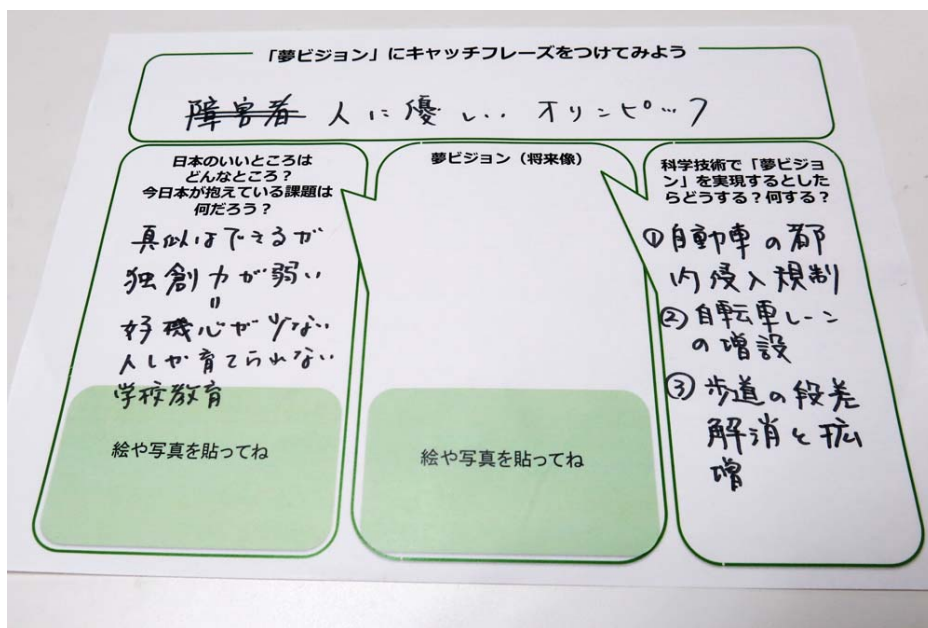 「夢ビジョン」にキャッチフレーズをつけてみよう
障害者 人に優しい オリンピック
日本のいいところは
どんなところ？
今日本が抱えている課題は
何だろう？
真似はできるが
独創力が弱い
=
好機心が少ない
人しか育てられない
学校教育
絵や写真を貼ってね
夢ビジョン（将来像）
絵や写真を貼ってね
科学技術で「夢ビジョ
ン」を実現するとした
らどうする？何する？
①自動車の都
内侵入規制
②自転車レーン
の増設
③歩道の段差
解消と拡
増